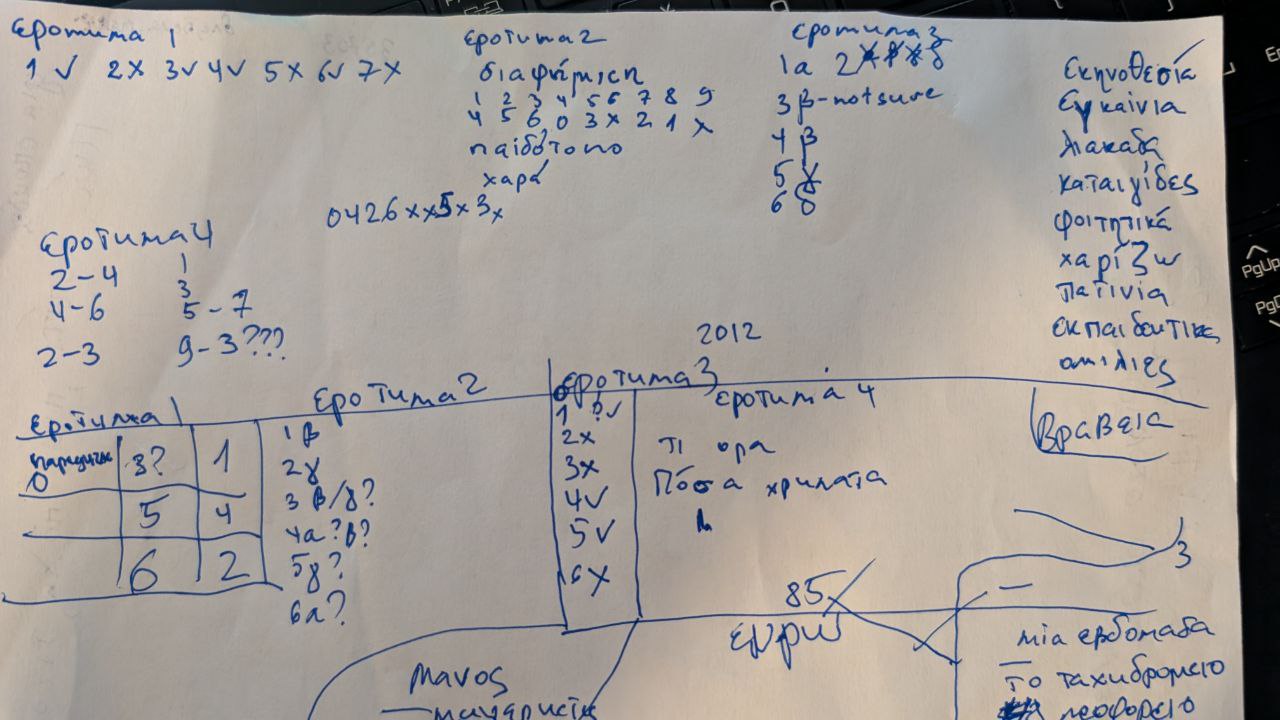 εροτιμα 1
1 ✓ 2x 3✓ 4✓ 5x 6✓ 7x
εροτιμα 2
διαφήμιση
1 2 3 4 5 6 7 8 9
4 5 6 0 3 x 2 1 x
παιδότοπο
χαρά
0426xx5x3x
εροτιμα 3
1α 2
3β-not sure
4β
5γ
6δ
σκηνοθεσία
εγκαίνια
λιακαδα
καταιγίδες
φοιτητικά
χαρίζω
πατίνια
εκπαιδευτικες
ομιλιες
εροτιμα 4
2-4 1
4-6 3
5-7
2-3 9-3???
2012
εροτιμα 1
3? 1
0
5 4
6 2
εροτιμα 2
1β
2γ
3 β/γ?
4α?β?
5γ?
6α?
εροτιμα 3
1 ?✓
2x
3x
4✓
5✓
6x
εροτιμα 4
τι ορα
Πόσα χριματα
βραβεια
3
85
ευρω
μανος
μια εβδομαδα
το ταχιδρομειο
λεοφορειο
PgUp